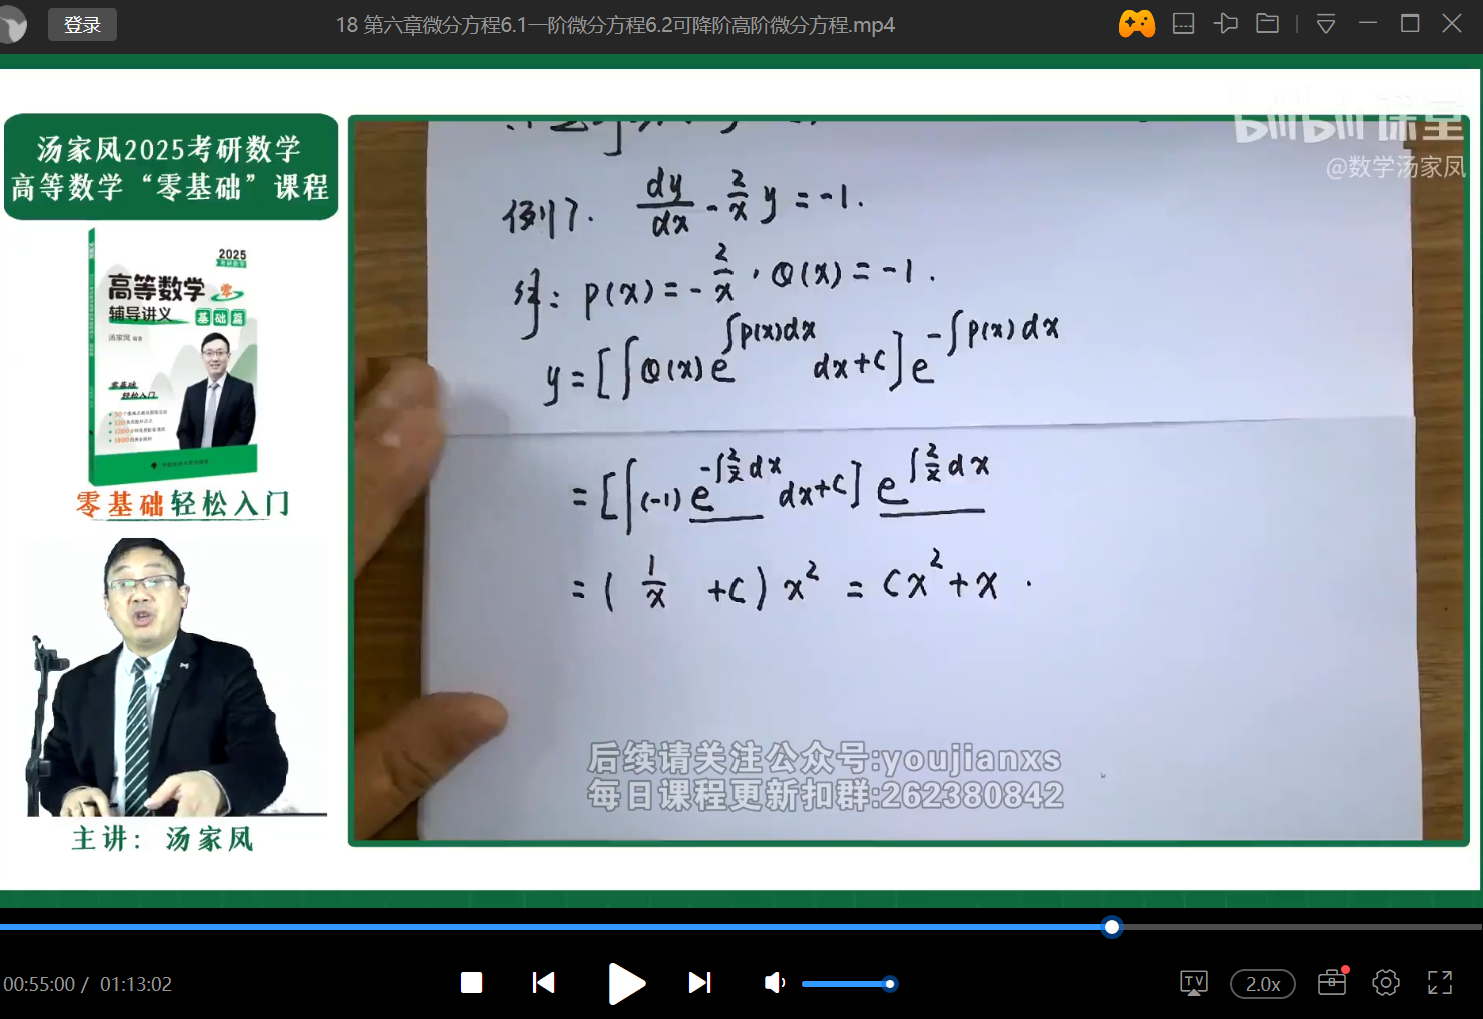 登录
18 第六章微分方程6.1一阶微分方程6.2可降阶高阶微分方程.mp4
汤家凤2025考研数学
高等数学“零基础”课程
2025
高等数学
零
辅导讲义
基础篇
汤家凤
零基础
轻松入门
零基础轻松入门
主讲：汤家凤
bilibili 课堂
@数学汤家凤
例7. dy/dx - 2/x y = -1.
解: P(x) = - 2/x, Q(x) = -1.
y = [∫Q(x)e^{∫P(x)dx} dx+C]e^{-∫P(x)dx}
= [∫(-1)e^{-∫2/x dx} dx+C] e^{∫2/x dx}
= ( 1/x +C) x² = Cx²+x .
后续请关注公众号:youjianxs
每日课程更新扣群:262380842
00:55:00 / 01:13:02
TV
2.0x